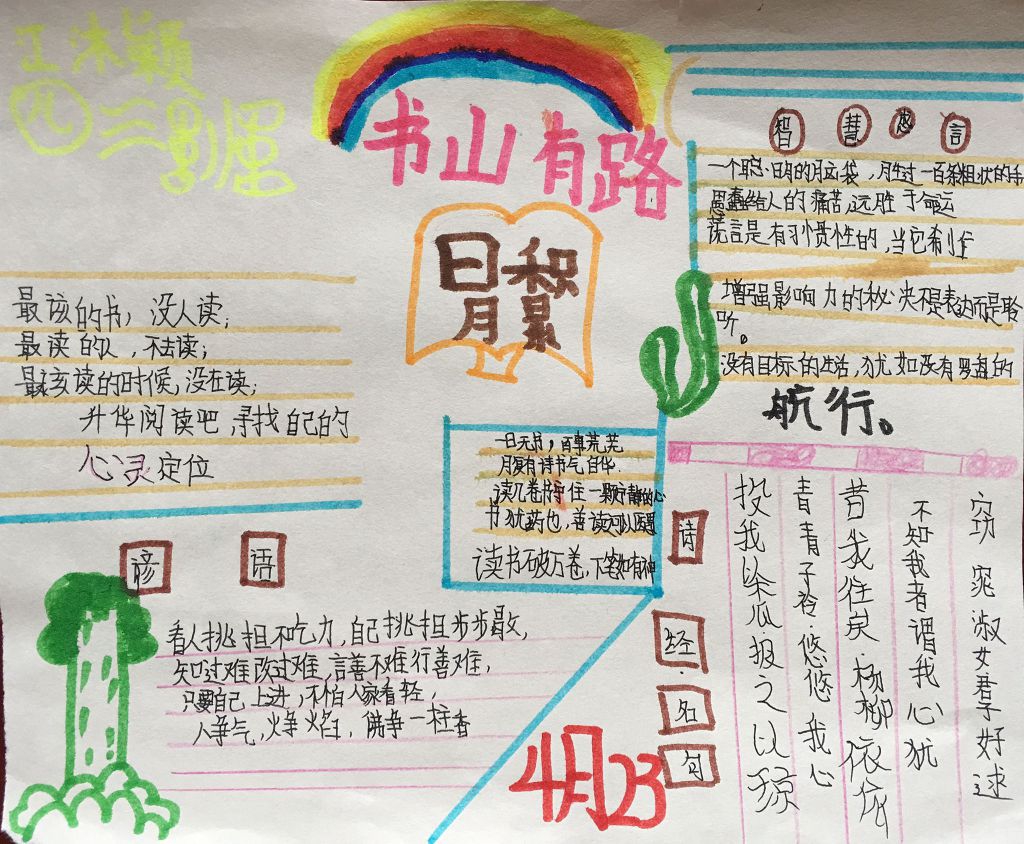 书山有路
日积
月累
智慧忠言
一个聪明的脑袋，胜过一百条粗状的手
愚蠢给人的痛苦，远胜于命运
谎言是有习惯性的，当它
增强影响力的秘决不是表达而是聆
听。
没有目标的生活，犹如没有罗盘的
航行。
最该的书，没人读；
最读的人，不去读；
最该读的时候，没在读；
升华阅读吧，寻找自己的
心灵定位
一日无书，百事荒芜
腹有诗书气自华.
读几卷书守住一颗宁静的心
书犹药也，善读可以医愚
读书破万卷，下笔如有神
谚语
看人挑担不吃力，自己挑担步步歇，
知过难改过难，言善不难行善难，
只要自己上进，不怕人家看轻，
人争气，火争焰，佛争一柱香
4月23
诗经·名句
窈窕淑女君子好逑
不知我者谓我心犹
昔我往矣·杨柳依依
青青子衿·悠悠我心
投我以木瓜·报之以琼